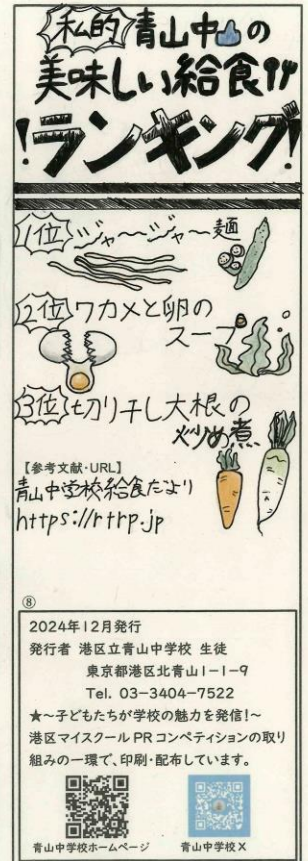 私的 青山中の
美味しい給食!!
！ランキング！
1位 ジャ〜ジャ〜麺
2位 ワカメと卵の
スープ
3位 切り干し大根の
炒め煮
【参考文献・URL】
青山中学校給食だより
https://rtrp.jp
⑧
2024年12月発行
発行者 港区立青山中学校 生徒
東京都港区北青山1-1-9
Tel. 03-3404-7522
★〜子どもたちが学校の魅力を発信！〜
港区マイスクールPRコンペティションの取り
組みの一環で、印刷・配布しています。
青山中学校ホームページ 青山中学校X